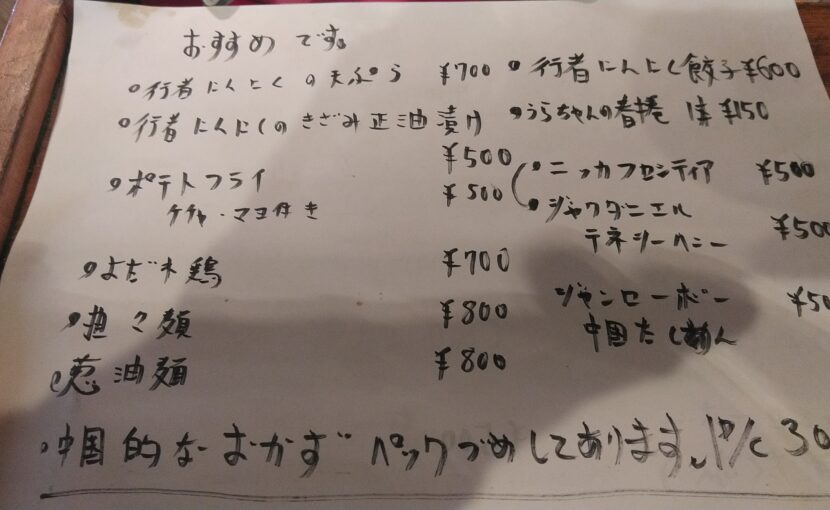 おすすめです。
・行者にんにくの天ぷら ¥700
・行者にんにくのきざみ正油漬け ¥500
・ポテトフライ ¥500
ケチャ・マヨ付き
・よだれ鶏 ¥700
・担々麺 ¥800
・葱油麺 ¥800
・行者にんにく餃子 ¥600
・うらちゃんの春捲 1本 ¥150
・ニッカフロンティア ¥500
・ジャックダニエル
テネシーハニー ¥500
ジャンローボー ¥50
中国たし
・中国的なおかずパックづめしてあります。1P/C 30